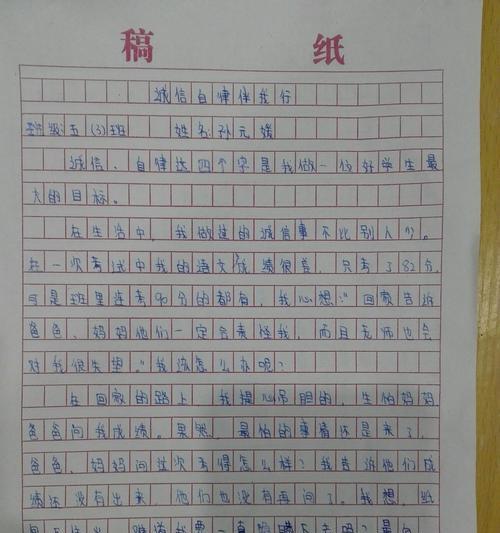 稿 纸
诚信自律伴我行
班级:五(3)班 姓名:孙元媛
诚信、自律这四个字是我做一位好学生最
大的目标。
在生活中,我做过的诚信事不比别人少。
在一次考试中我的语文成绩很差,只考了82分,
可是班里连考90分的都有,我心想:"回家告诉
爸爸、妈妈他们一定会责怪我,而且老师也会
对我很失望。"我该怎么办呢?
在回家的路上,我提心吊胆的,生怕妈妈
爸爸问我成绩。果然,最怕的事情还是来了,
爸爸、妈妈问这次考得怎么样?我告诉他们成
绩还没有出来,他们也没有再问了。我想,纸
包不住火,难道我要一直隐瞒下去吗?最后